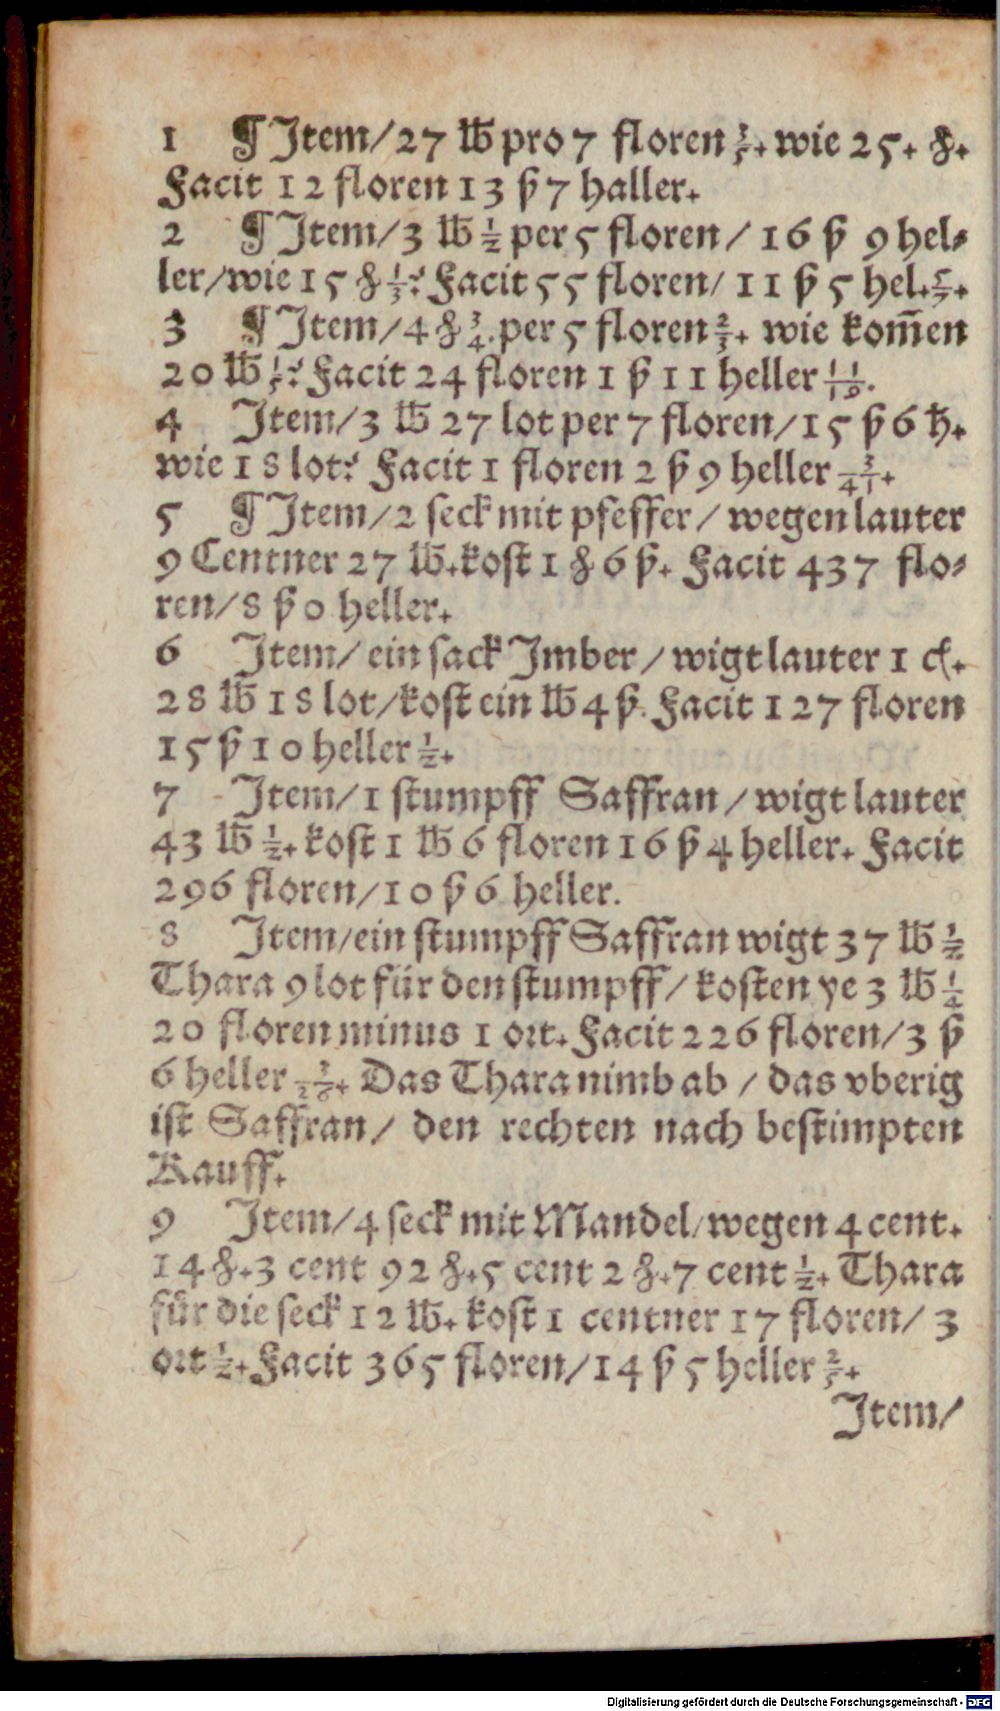 1 ¶ Item/27 ℔ pro 7 floren ⅖. wie 25. ℔.
Facit 12 floren 13 ß 7 haller.
2 ¶ Item/3 ℔ ½ per 5 floren/16 ß 9 hel⸗
ler/wie 15 ℔ ⅓? Facit 55 floren/ 11 ß 5 hel. 5/7.
3 ¶ Item/4 ℔ ¾. per 5 floren ⅔. wie kom̃en
20 ℔ ⅕? Facit 24 floren 1 ß 11 heller 11/19.
4 Item/3 ℔ 27 lot per 7 floren/15 ß 6 ħ.
wie 18 lot? Facit 1 floren 2 ß 9 heller 3/41.
5 ¶ Item/2 seck mit pfeffer/wegen lauter
9 Centner 27 ℔. kost 1 ℔ 6 ß. Facit 437 flo⸗
ren/8 ß 0 heller.
6 Item/ein sack Imber/wigt lauter 1 c.
28 ℔ 18 lot/kost ein ℔ 4 ß. Facit 127 floren
15 ß 10 heller ½.
7 Item/1 stumpff Saffran/wigt lauter
43 ℔ ½. kost 1 ℔ 6 floren 16 ß 4 heller. Facit
296 floren/10 ß 6 heller.
8 Item/ein stumpff Saffran wigt 37 ℔ ½
Thara 9 lot für den stumpff/kosten ye 3 ℔ ¼
20 floren minus 1 ort. Facit 226 floren/3 ß
6 heller. Das Thara nimb ab/das vberig
ist Saffran/ den rechten nach bestimpten
Kauff.
9 Item/4 seck mit Mandel/wegen 4 cent.
14 ℔. 3 cent 92 ℔. 5 cent 2 ℔. 7 cent ½. Thara
für die seck 12 ℔. kost 1 centner 17 floren/ 3
ort ½. Facit 365 floren/14 ß 5 heller ⅖.
Item/
Digitalisierung gefördert durch die Deutsche Forschungsgemeinschaft - DFG